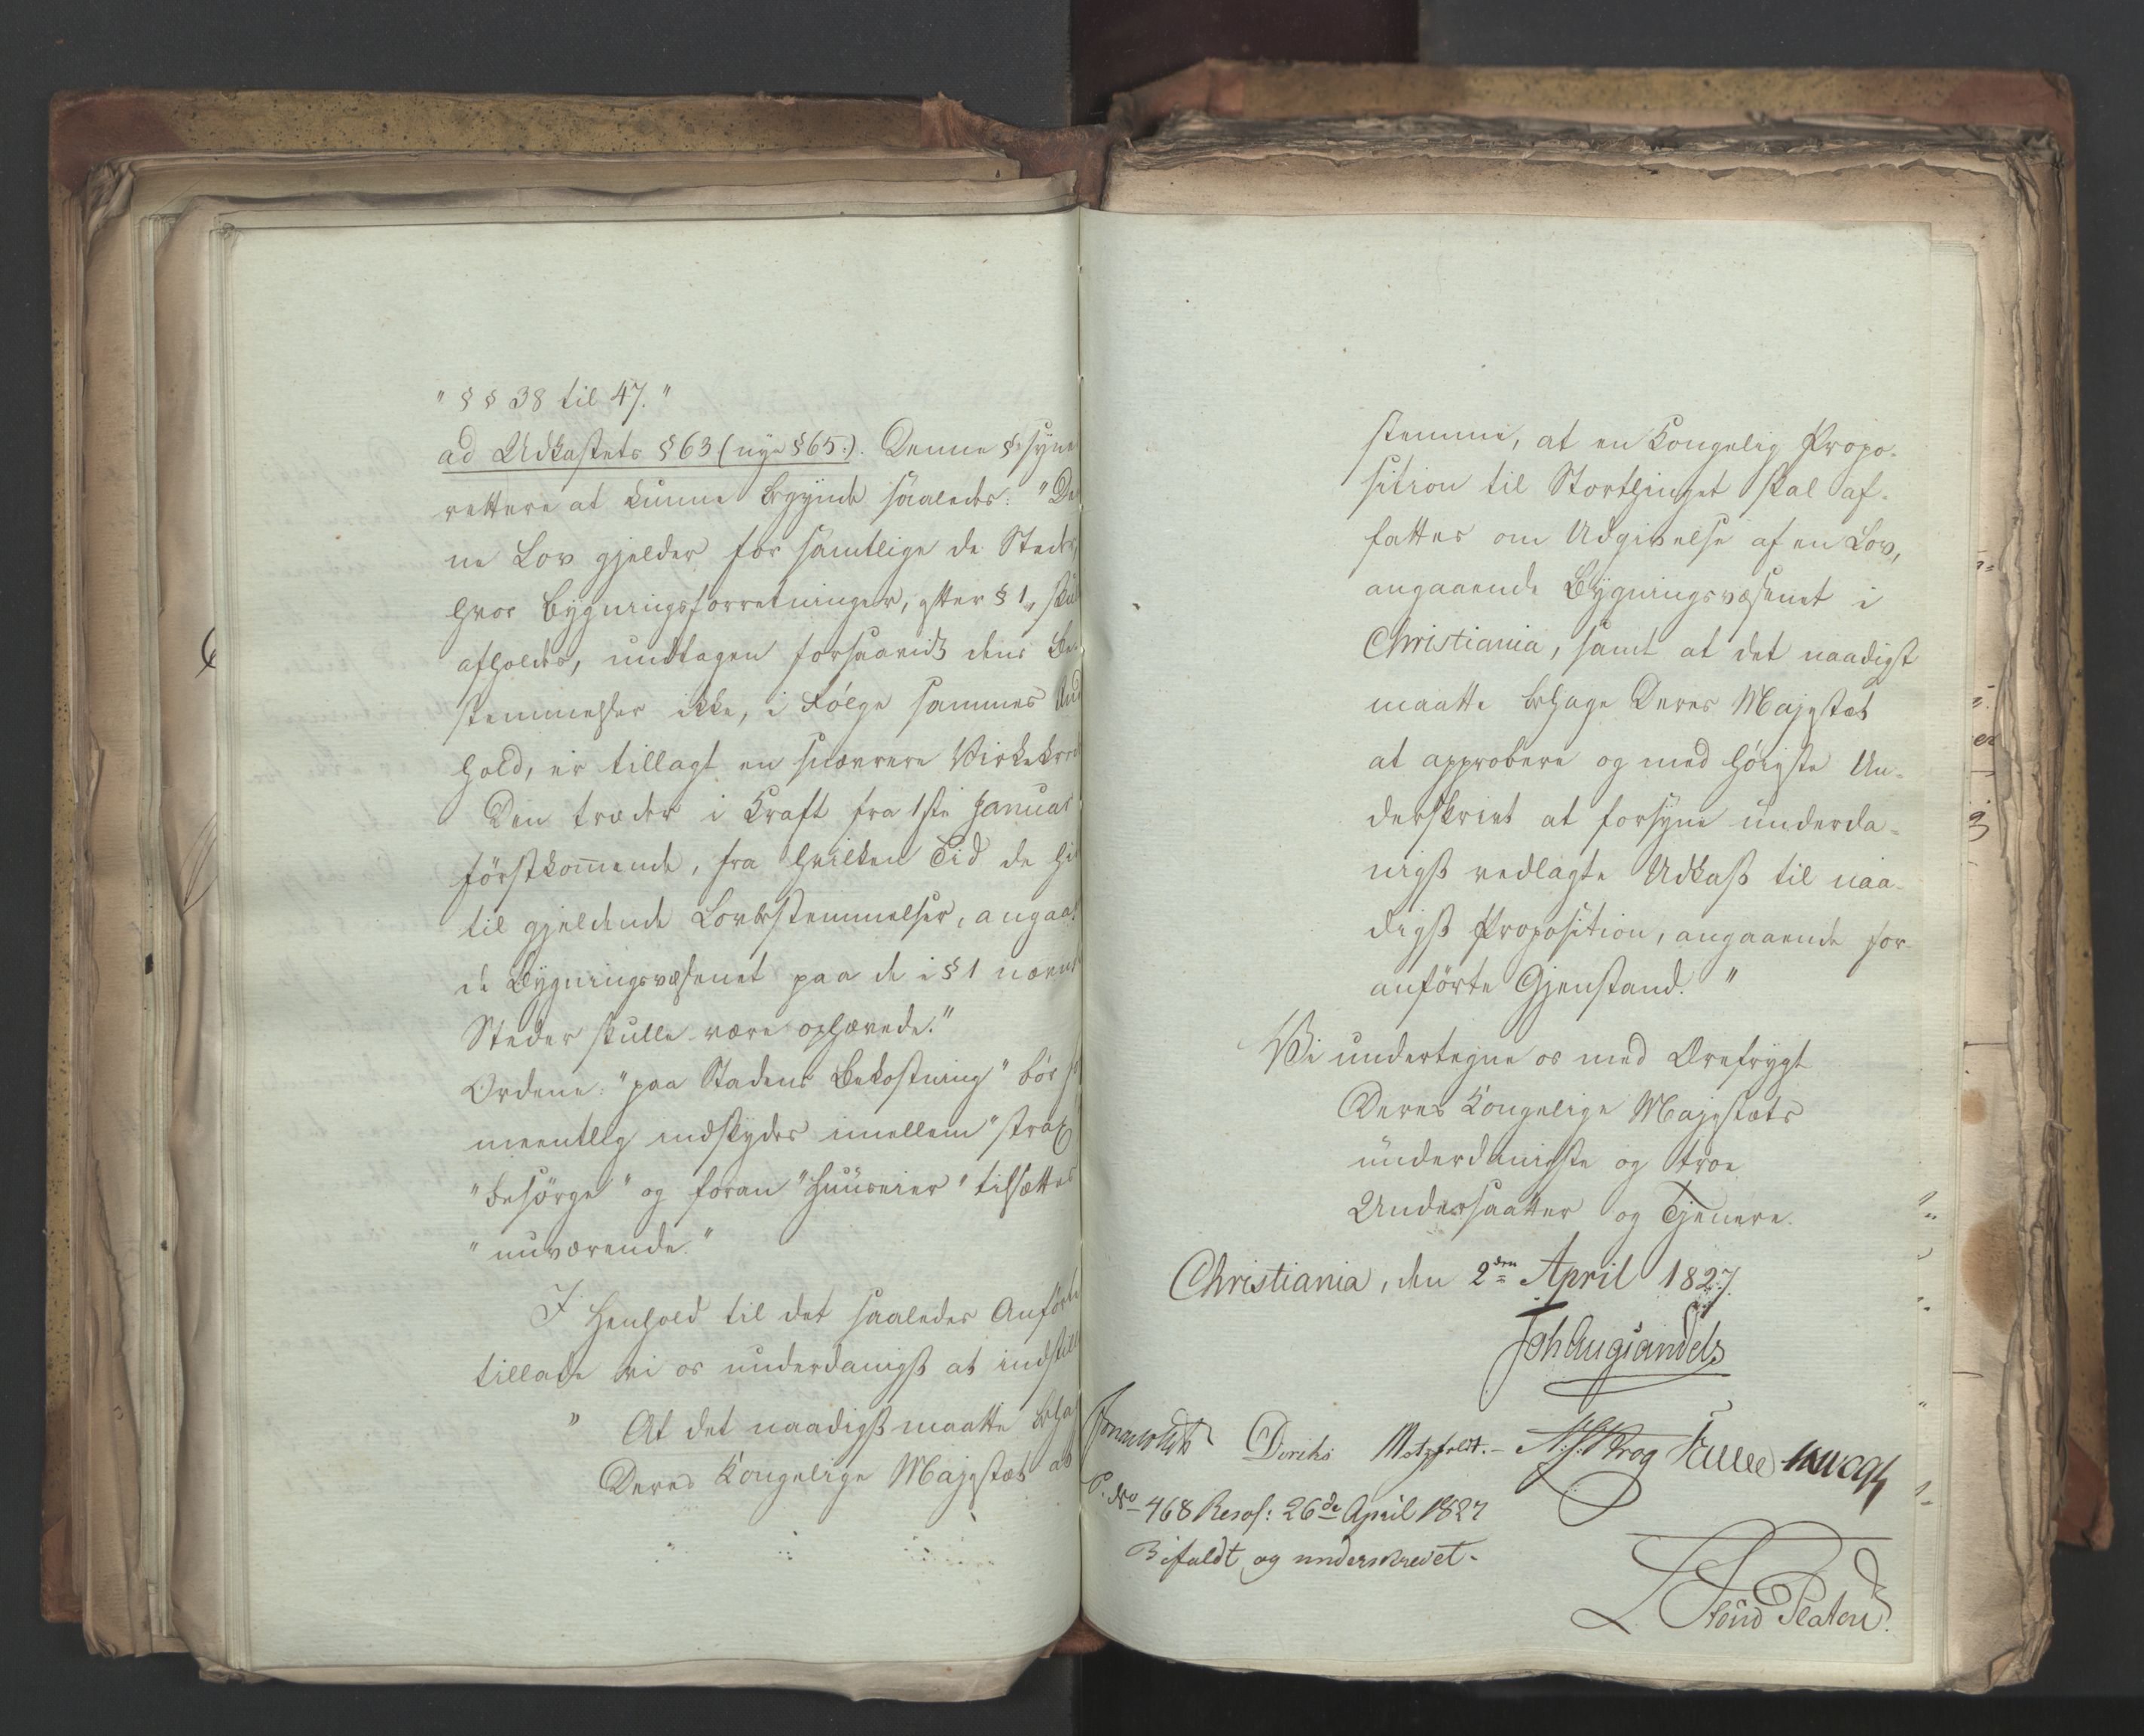 "§§ 38 til 47."
ad Udkastets § 63 (nye § 65.). Denne § syne
rettere at kunne begynde saaledes: "De
ne Lov gjelder for samtlige de Steder,
hvor Bygningsforretninger, efter § 1, skul
afholdes, undtagen forsaavidt dens Be-
stemmelser ikke, i Følge sammes Ind
hold, er tillagt en snævrere Virkekred
Den træder i Kraft fra 1ste Januar
förstkom̄ende, fra hvilken Tid de hid
til gjeldende Lovbestemmelser, angaa
de Bygningsvæsenet paa de i § 1 nævn
Steder skulle være ophævede."
Ordene: "paa Stadens Bekostning" bör
meentlig indskydes imellem "strax
"besörge" og foran "Huuseier" tilsættes
"nuværende."
I Henhold til det saaledes Anförte
tillade vi os underdanigst at indstille
" At det naadigst maatte behag
Deres Kongelige Majestæt at
stemme, at en Kongelig Propo-
sition til Storthinget skal af-
fattes om Udgivelse af en Lov,
angaaende Bygningsvæsenet i
Christiania, samt at det naadigst
maatte behage Deres Majestæt
at approbere og med höieste Un-
derskrivt at forsyne underda-
nigst vedlagte Udkast til naa-
digst Proposition, angaaende for-
anförte Gjenstand."
Vi undertegne os med Ærefrygt
Deres Kongelige Majestæts
underdanigste og troe
Undersaatter og Tjenere.
Christiania, den 2den April 1827.
Joh Aug Sandels
Diriks Motzfeldt. Krog
P. No 468 Resol: 26de April 1827
Bifaldt og underskrevet.
Platou